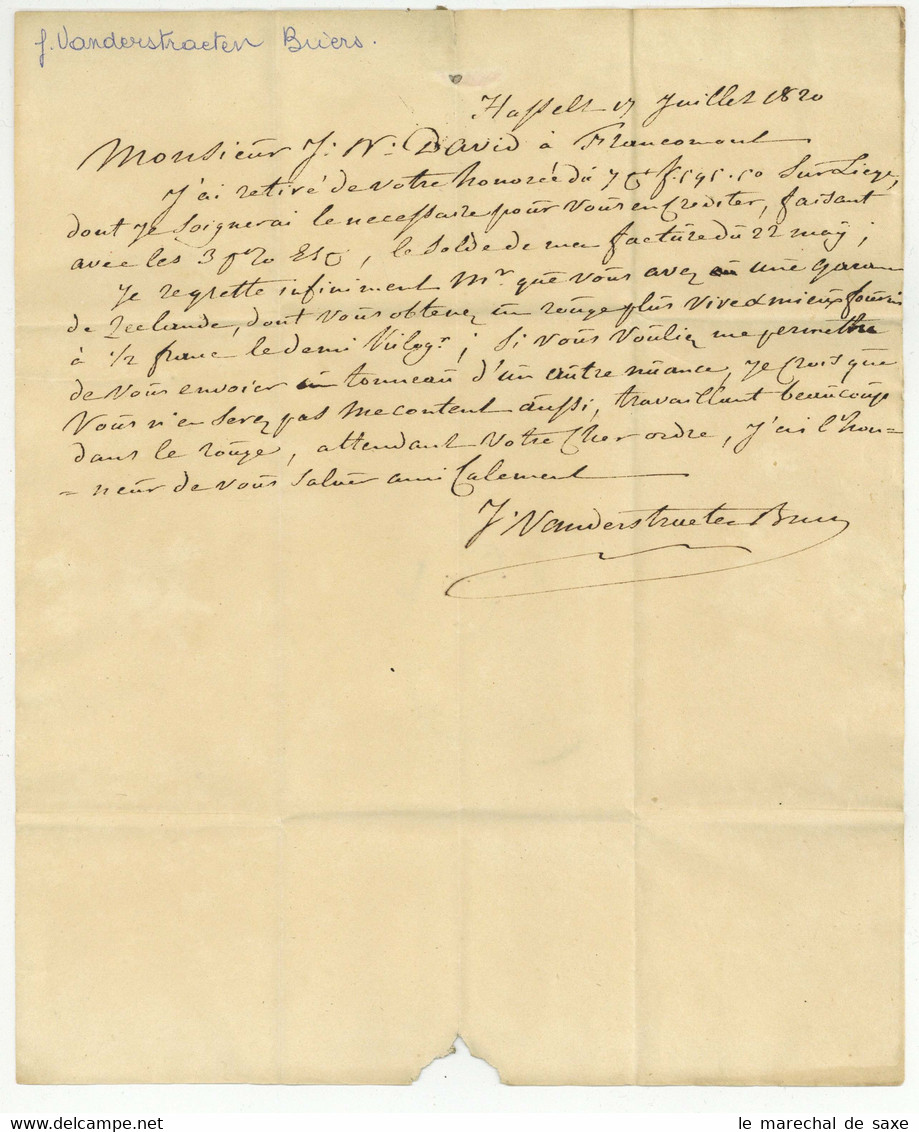 J. Vanderstraeten Briers.
Hasselt 17 Juillet 1820
Monsieur J: N: David à Francomont
J'ai retiré de votre honorée du 7 Ct f. 595.50 Sur Liege,
dont je Soignerai le necessaire pour Vous en Crediter, faisant
avec les 3 pr %, le Solde de ma facture du 22 maÿ;
Je regrette infiniment Mr. que Vous avez eu une Garan=
de Zeelande, dont Vous obtenez un rouge plus Vive & mieux fourni
à 1/2 franc le demi Kilogr; Si Vous Vouliez me permettre
de Vous envoier un tonneau d'un autre nuance, je Crois que
Vous n'en Serez pas Mecontent aussi, travaillant beaucoup
dans le rouge, attendant Votre Cher ordre, J'ai l'hon=
=neur de vous Saluer amiCalement
J: Vanderstraeten Briers
www.delcampe.net
le marechal de saxe